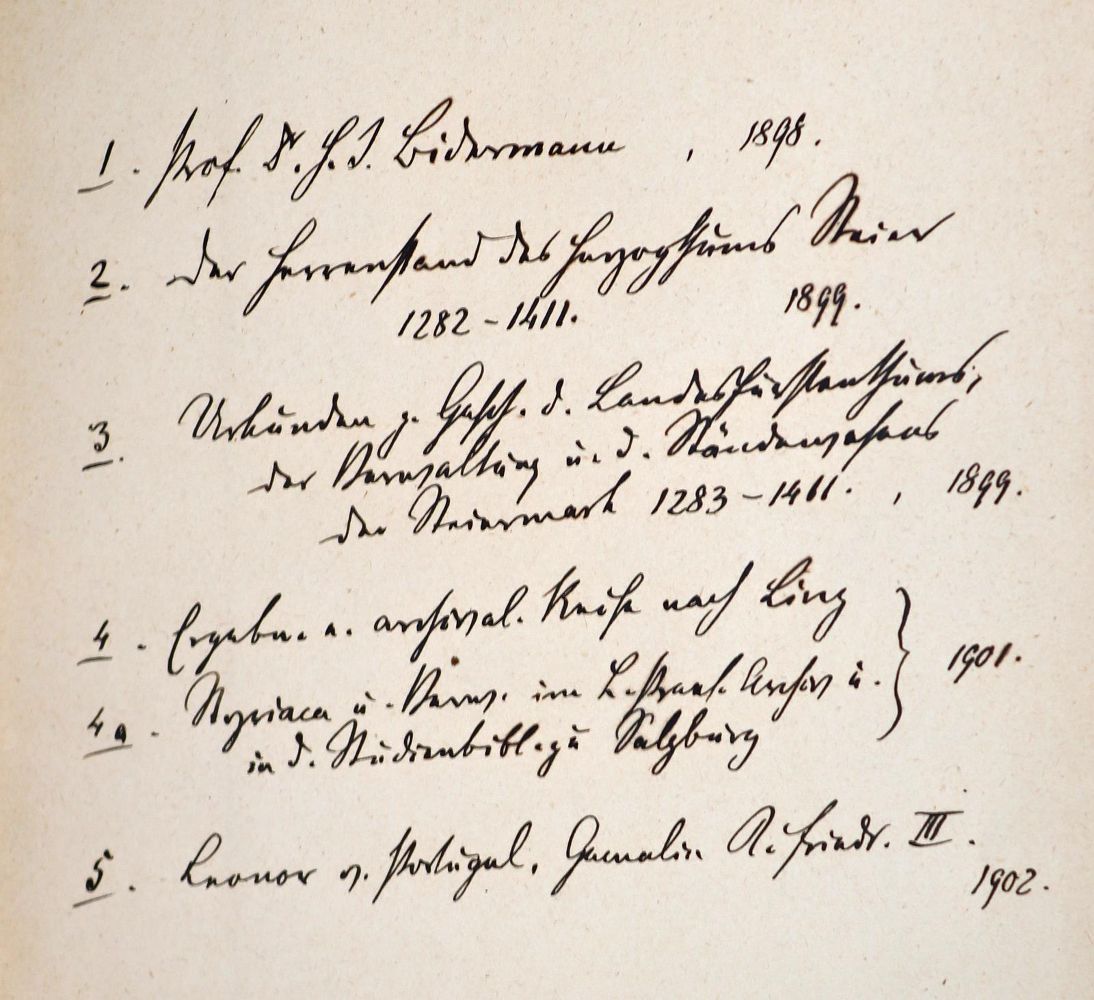 1. Prof. Dr. H. I. Bidermann, 1898.
2. Der Herrenstand des Herzogthums Steier
1282-1411. 1899.
3. Urkunden z. Gesch. d. Landesfürstenthums,
der Verwaltung u. d. Ständewesens
der Steiermark 1283-1411., 1899.
4. Ergebn. e. archival. Reise nach Linz
4a. Styriaca u. Verw. im k. k. Archiv u.
in d. Studienbibl. zu Salzburg
1901.
5. Leonor v. Portugal, Gemalin K. Friedr. III.
1902.